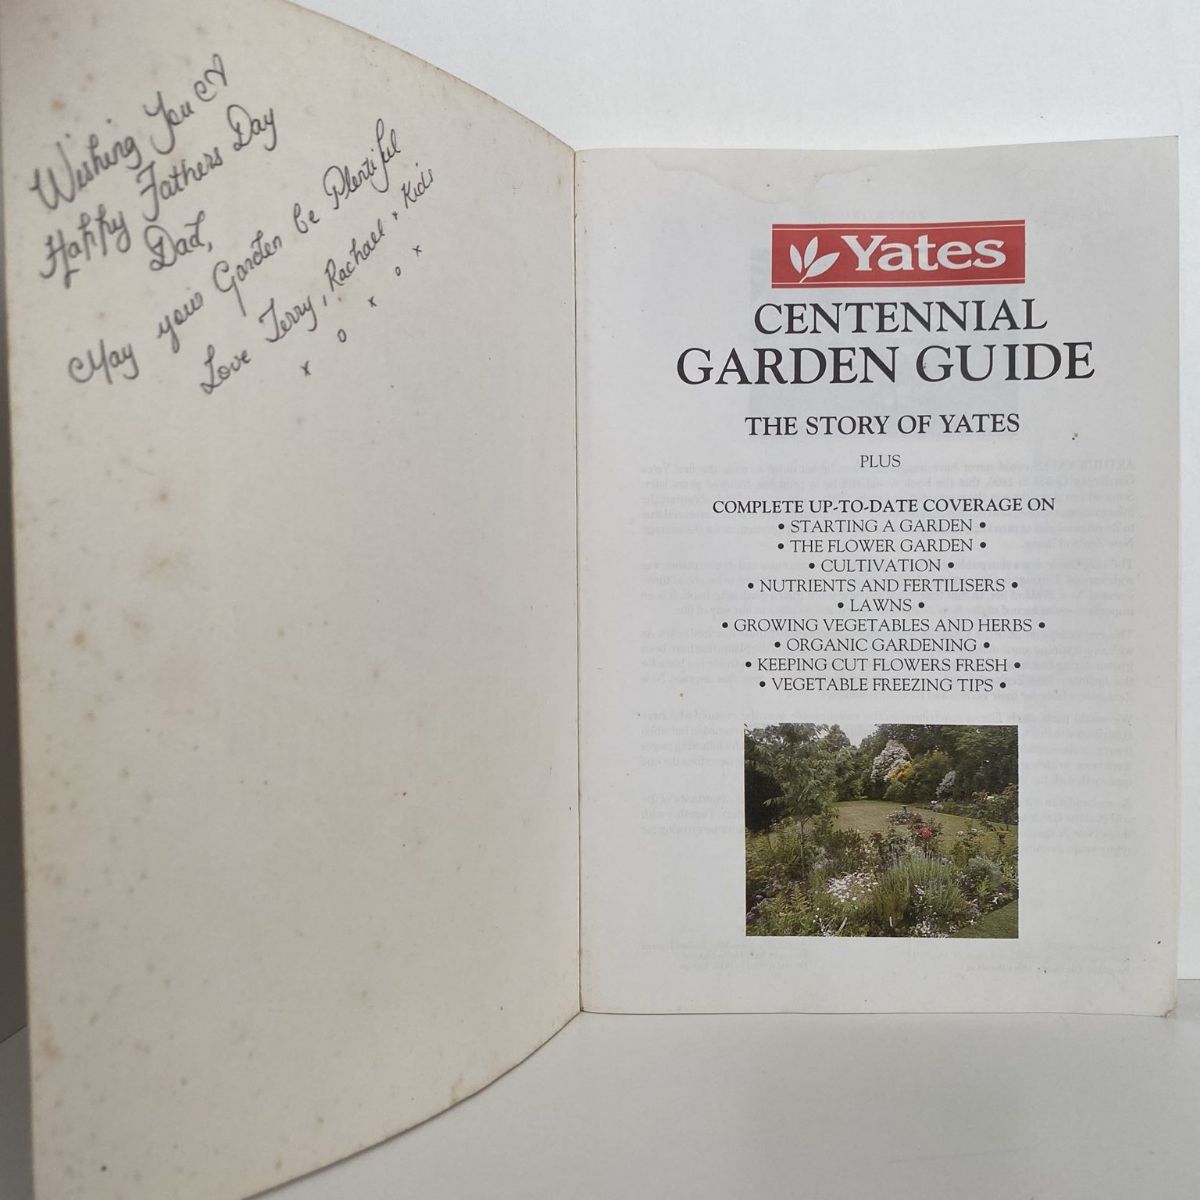 Wishing You A
Happy Fathers Day
Dad,
May your Garden be Plentiful
Love Terry, Rachael + Kids
x o x o x
Yates
CENTENNIAL
GARDEN GUIDE
THE STORY OF YATES
PLUS
COMPLETE UP-TO-DATE COVERAGE ON
• STARTING A GARDEN •
• THE FLOWER GARDEN •
• CULTIVATION •
• NUTRIENTS AND FERTILISERS •
• LAWNS •
• GROWING VEGETABLES AND HERBS •
• ORGANIC GARDENING •
• KEEPING CUT FLOWERS FRESH •
• VEGETABLE FREEZING TIPS •